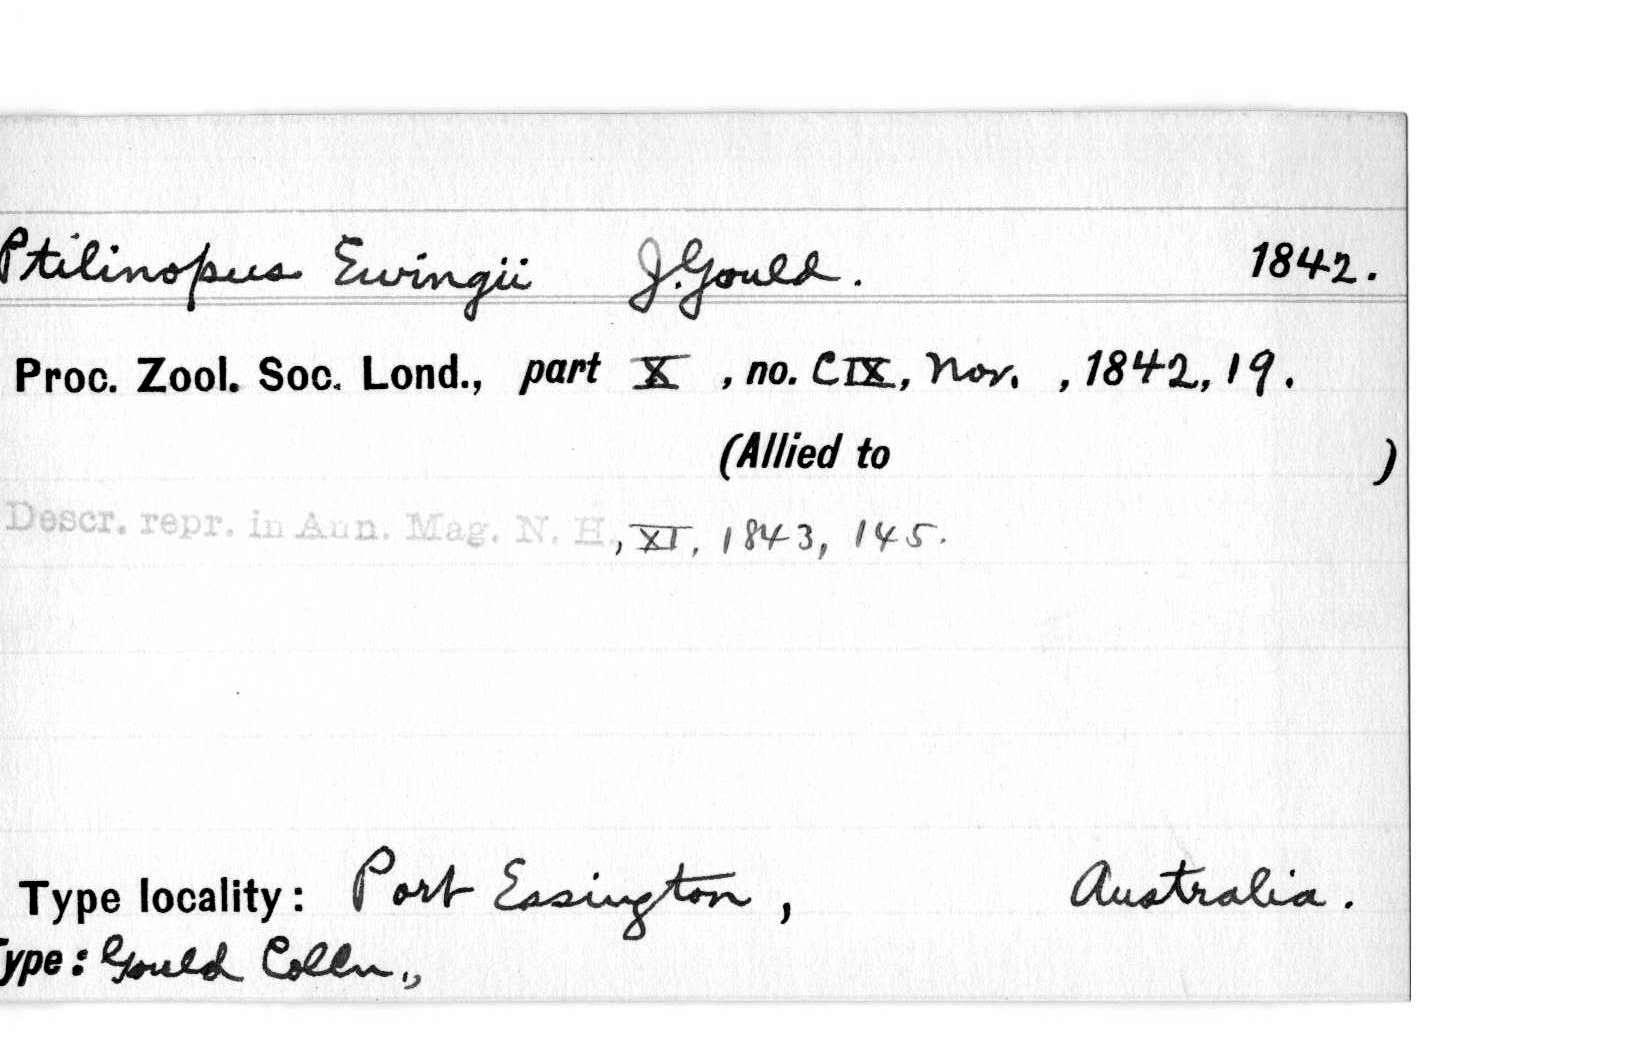 Ptilinopus Ewingii J. Gould. 1842.
Proc. Zool. Soc. Lond., part X, no. CIX, Nov., 1842, 19.
(Allied to )
Descr. repr. in Ann. Mag. N. H., XI, 1843, 145.
Type locality: Port Essington, Australia.
Type: Gould Colln.,